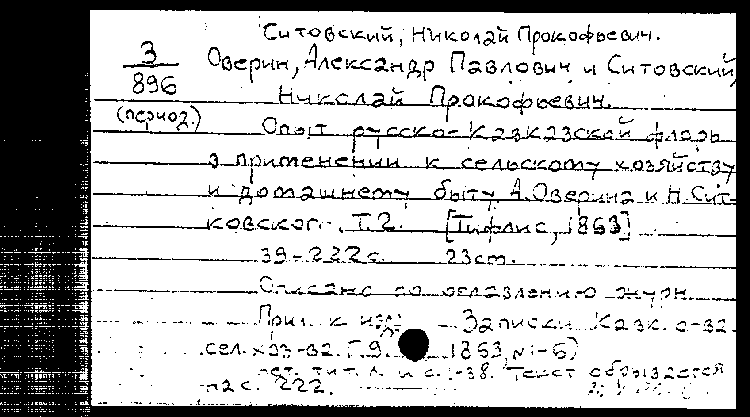 Ситовский, Николай Прокофьевич.
3
896
(период.)
Оверин, Александр Павлович и Ситовский,
Николай Прокофьевич.
Опыт русско-кавказской флоры
в применении к сельскому хозяйству
и домашнему быту А. Оверина и Н. Сит-
ковског Т.2. [Тифлис, 1863]
39-222 с. 23 ст.
Описано по оглавлению журн.
Прил. к изд: Записки Кавк. о-ва
сел. хоз-ва. Г.9. 1863, №1-6)
тит. л. и с. 1-38. Текст обрывается
на с. 222.